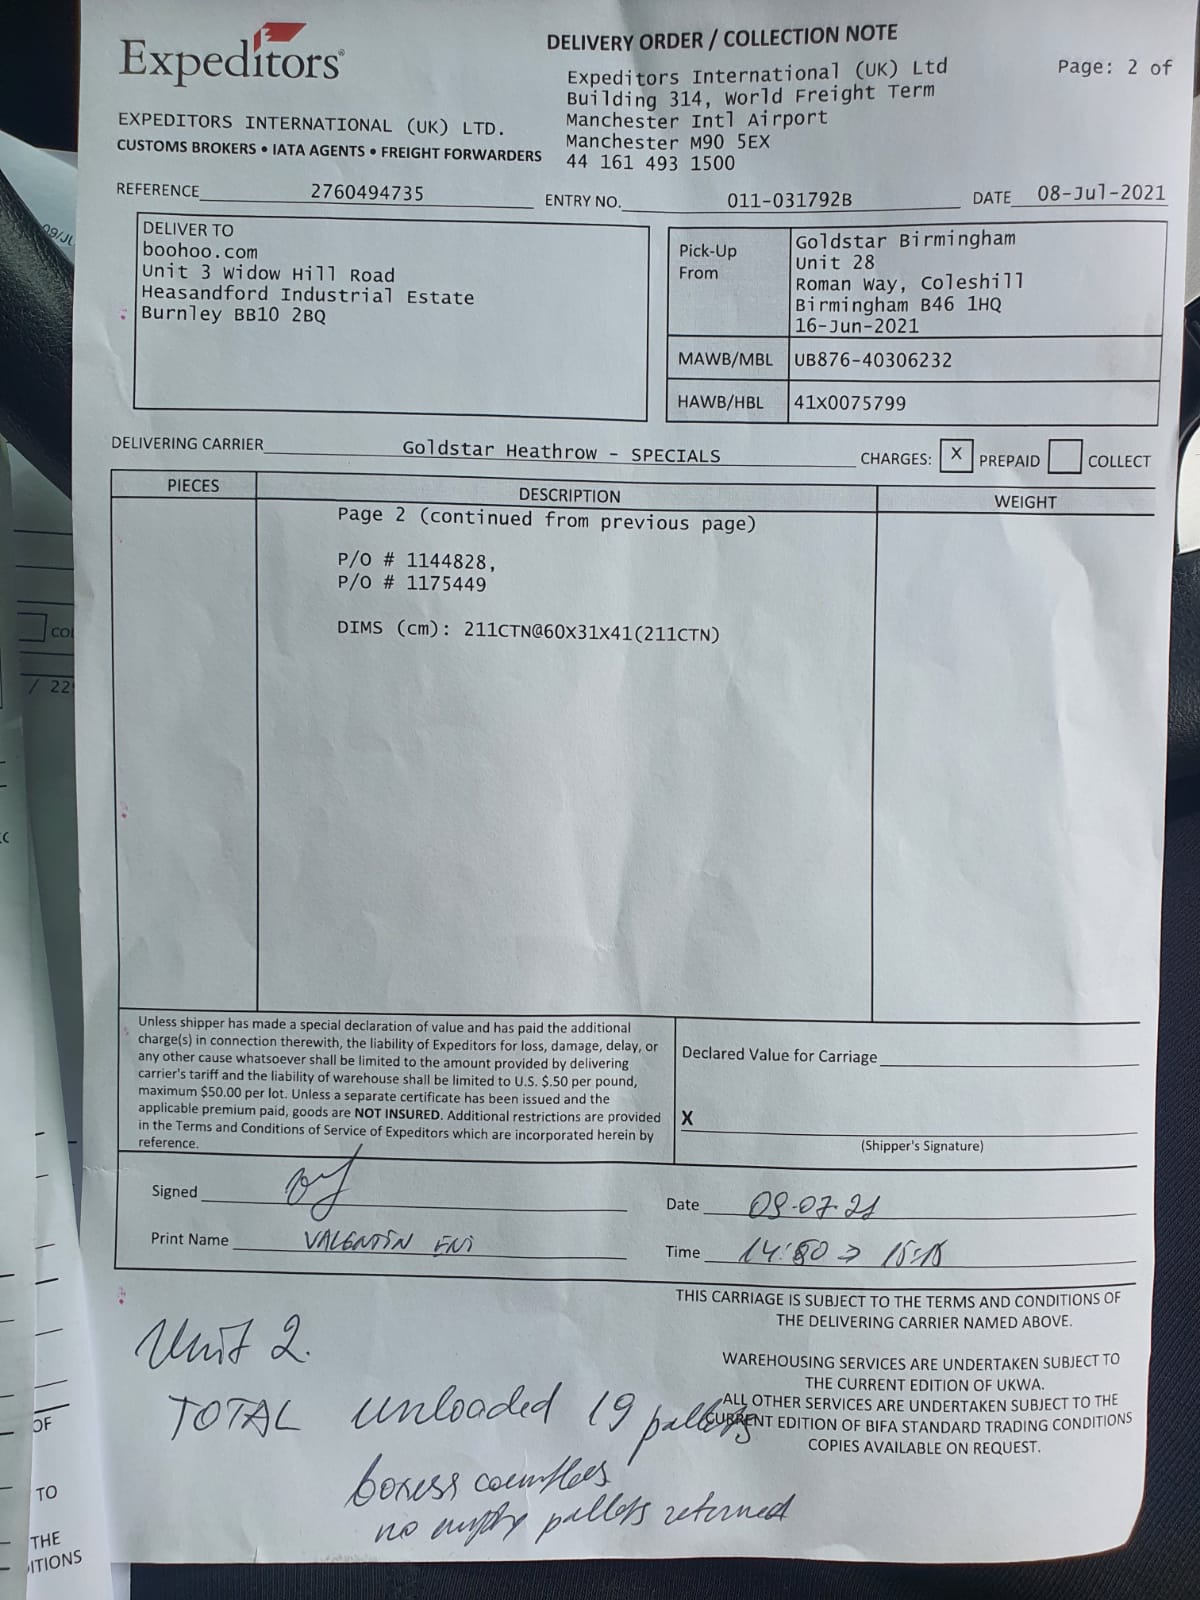 Expeditors®
EXPEDITORS INTERNATIONAL (UK) LTD.
CUSTOMS BROKERS • IATA AGENTS • FREIGHT FORWARDERS
DELIVERY ORDER / COLLECTION NOTE
Expeditors International (UK) Ltd
Building 314, World Freight Term
Manchester Intl Airport
Manchester M90 5EX
44 161 493 1500
Page: 2 of
REFERENCE 2760494735 ENTRY NO. 011-031792B DATE 08-Jul-2021
DELIVER TO
boohoo.com
Unit 3 Widow Hill Road
Heasandford Industrial Estate
Burnley BB10 2BQ
Pick-Up From
Goldstar Birmingham
Unit 28
Roman Way, Coleshill
Birmingham B46 1HQ
16-Jun-2021
MAWB/MBL UB876-40306232
HAWB/HBL 41X0075799
DELIVERING CARRIER Goldstar Heathrow - SPECIALS CHARGES: X PREPAID COLLECT
PIECES DESCRIPTION WEIGHT
Page 2 (continued from previous page)
P/O # 1144828,
P/O # 1175449
DIMS (cm): 211CTN@60X31X41(211CTN)
Unless shipper has made a special declaration of value and has paid the additional
charge(s) in connection therewith, the liability of Expeditors for loss, damage, delay, or
any other cause whatsoever shall be limited to the amount provided by delivering
carrier's tariff and the liability of warehouse shall be limited to U.S. $.50 per pound,
maximum $50.00 per lot. Unless a separate certificate has been issued and the
applicable premium paid, goods are NOT INSURED. Additional restrictions are provided
in the Terms and Conditions of Service of Expeditors which are incorporated herein by
reference.
Declared Value for Carriage
X
(Shipper's Signature)
Signed
Date 09-07-21
Print Name VALENTIN ENI
Time 14:80 → 15:15
THIS CARRIAGE IS SUBJECT TO THE TERMS AND CONDITIONS OF
THE DELIVERING CARRIER NAMED ABOVE.
WAREHOUSING SERVICES ARE UNDERTAKEN SUBJECT TO
THE CURRENT EDITION OF UKWA.
ALL OTHER SERVICES ARE UNDERTAKEN SUBJECT TO THE
CURRENT EDITION OF BIFA STANDARD TRADING CONDITIONS
COPIES AVAILABLE ON REQUEST.
Unit 2.
TOTAL unloaded 19 pallets
boxess countles
no empty pallets returned
09/JU
COL
/ 22
OF
TO
THE
ITIONS